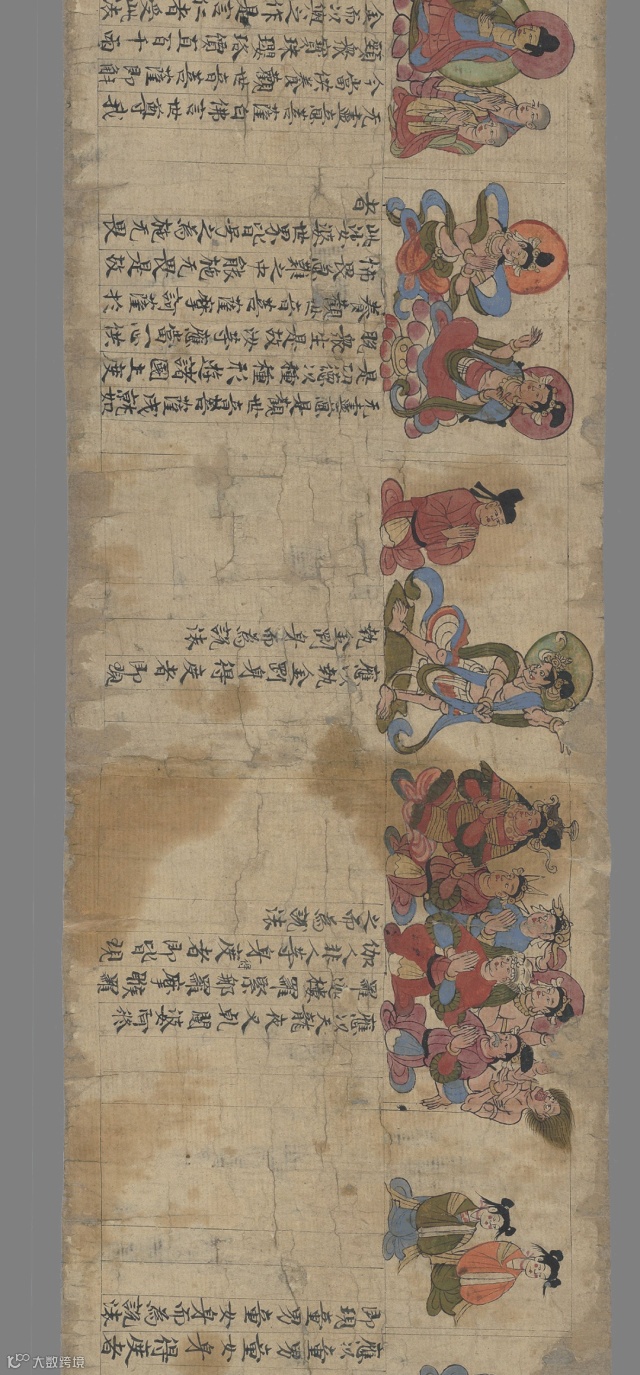 應以童男童女身得度者
即現童男童女身而為說法
應以天龍夜叉乹闥婆阿修
羅迦樓羅緊那羅摩睺羅
伽人非人等身得度者即皆現
之而為說法
應以執金剛身得度者即現
執金剛身而為說法
无盡意是觀世音菩薩成就如
是功德以種種形遊諸國土度
脫眾生是故汝等應當一心供
養觀世音菩薩摩訶薩於
怖畏急難之中能施无畏是故
此娑婆世界皆号之為施无畏
者
无盡意菩薩白佛言世尊我
今當供養觀世音菩薩即解
頸眾寶珠瓔珞價直百千兩
金而以與之作是言仁者受此法
大数跨境